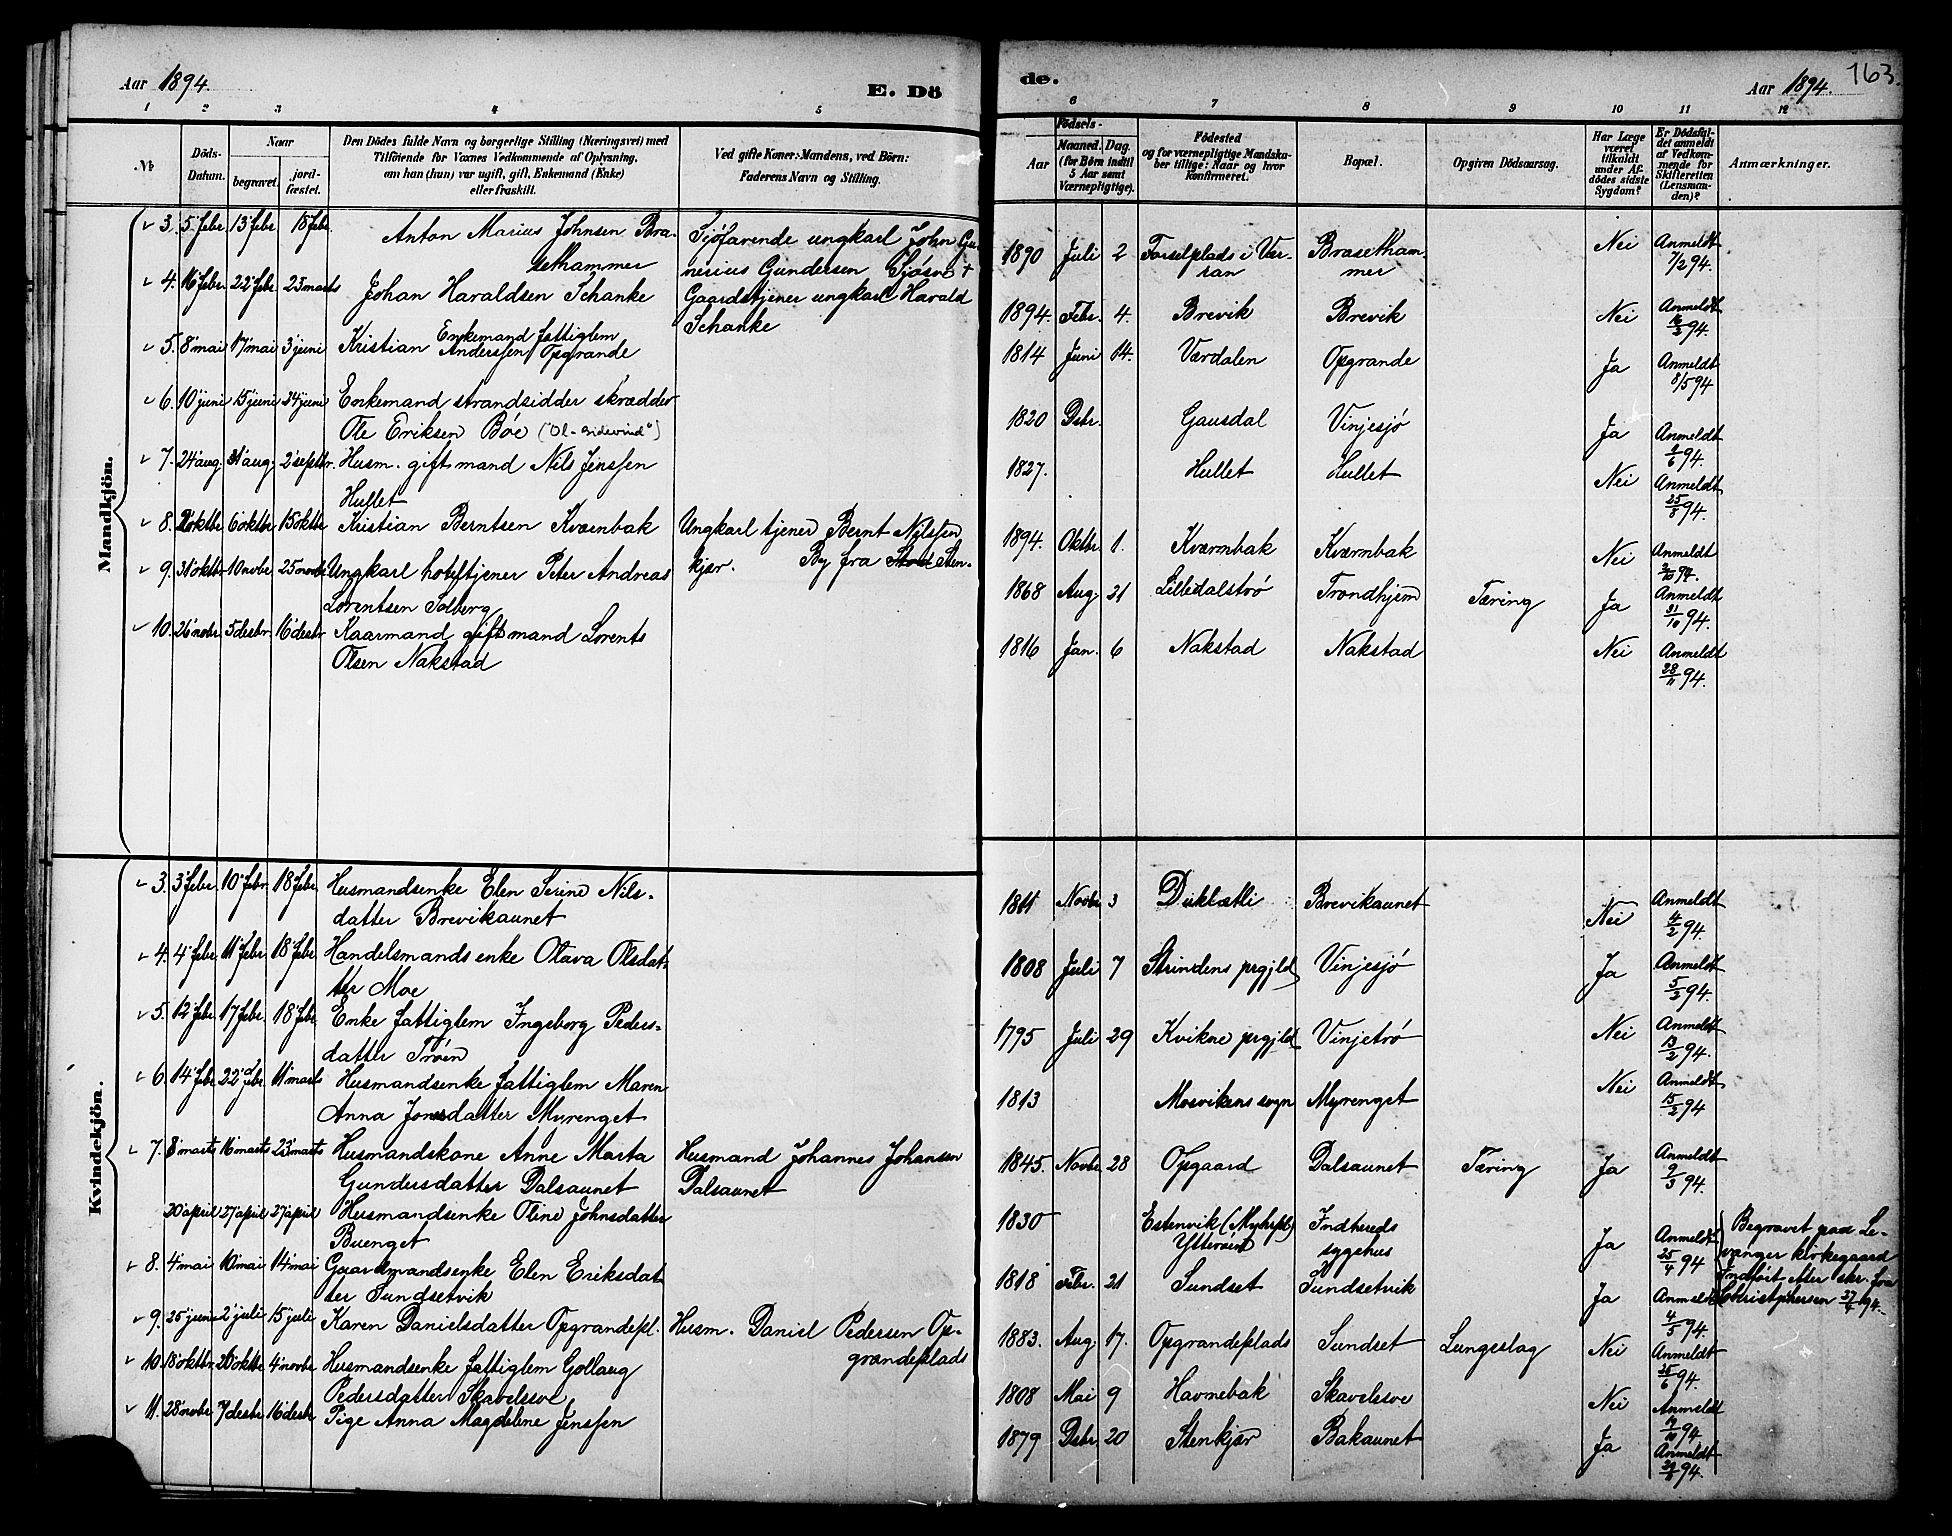 Aar 1894. E. Dö
1 2 3 4 5
№
Döds-Datum.
Naar
begravet.
jord-fæstet.
Den Dödes fulde Navn og borgerlige Stilling (Næringsvei) med
Tilföiende for Voxnes Vedkommende af Oplysning,
om han (hun) var ugift, gift, Enkemand (Enke)
eller fraskilt.
Ved gifte Koner: Mandens, ved Börn:
Faderens Navn og Stilling.
Mandkjön.
3. 5 febr 13 febr 18 febr. Anton Marius Johnsen Bra- Sjöfarende ungkarl John Gu-
sethammer nerius Gundersen Sjösvo +
4. 16 febr 22 febr 23 marts Johan Haraldsen Schanke Gaardstjener ungkarl Harald
Schanke
Enkemand fattiglem
5. 8 mai 17 mai 3 juni Kristian Anderssen Opgrande
6. 10 juni 15 juni 24 juni Enkemand strandsidder skrædder
Ole Eriksen Böe ("Ol-Sidevind")
7. 24 aug. 31 aug. 2 septbr. Husm. gift mand Nils Jenssen
Hullet
8. 2 oktbr 6 oktbr 15 oktbr Kristian Berntsen Kværnbak Ungkarl tjener Bernt Nilssen
By fra Stod Sten-
9. 31 oktbr 10 novbr 25 novbr Ungkarl hoteltjener Peter Andreas kjær.
Lorentsen Solberg
10. 26 novbr. 5 desbr. 16 desbr. Kaarmand gift mand Lorents
Olsen Nakstad
Kvindekjön.
3. 3 febr. 10 febr. 18 febr. Husmandsenke Elen Serine Nils-
datter Brevikaunet
4. 4 febr. 11 febr. 18 febr. Handelsmandsenke Olava Olsdat-
ter Moe
5. 12 febr. 17 febr. 18 febr. Enke fattiglem Ingeborg Peders-
datter Tröen
6. 14 febr. 22 febr. 11 marts Husmandsenke fattiglem Maren
Anna Jonsdatter Myrenget
7. 8 marts 16 marts 23 marts Husmandskone Anne Marta Husmand Johannes Johansen
Gundersdatter Dalsaunet Dalsaunet
20 april 27 april 27 april Husmandsenke Oline Johnsdatter
Buenget
8. 4 mai 10 mai 14 mai Gaardmandsenke Elen Eriksdat
ter Sundsetvik
9. 25 juni 2 juli 15 juli Karen Danielsdatter Opgrandepl. Husm. Daniel Pedersen Op-
grandeplads
10. 18 oktbr. 26 oktbr 4 novbr Husmandsenke fattiglem Gollaug
Pedersdatter Skavelsve
11. 28 novbr 7 desbr 16 desbr Pige Anna Magdelene Jenssen
de. Aar 1894. 163.
6 7 8 9 10 11 12
Födsels-
Aar
Maaned. Dag.
(for Börn indtil
5 Aar samt
Værnepligtige).
Födested
og for værnepligtige Mandska-
ber tillige: Naar og hvor
konfirmeret.
Bopæl.
Opgiven Dödsaarsag.
Har Læge
været
tilkaldt
under Af-
dödes sidste
Sygdom?
Er Dödsfal-
det anmeldt
af Vedkom-
mende for
Skifteretten
(Lensman-
den)?
Anmærkninger.
1890 Juli 2 Forselplads i Ver- Brasetham- Nei Anmeldt
ran mer 7/2 94.
1894. Febr. 4. Brevik Brevik Nei Anmeldt
16/3 94.
1814 Juni 14. Værdalen Opgrande Ja Anmeldt
8/5 94
1820 Dsbr. Gausdal Vinjesjö Ja Anmeldt
/6 94.
1827. Hullet Hullet Nei Anmeldt
25/8 94.
1894. Oktbr. 1. Kværnbak Kværnbak Nei Anmeldt
2/10 94.
1868 Aug. 21 Lilledalströ Trondhjem Tæring Ja Anmeldt
31/10 94.
1816 Jan. 6 Nakstad Nakstad Nei Anmeldt
28/11 94.
1811 Novbr 3 Duklætli Brevikaunet Nei Anmeldt
4/2 94.
1808 Juli 7 Strindens prgjld Vinjesjö Ja Anmeldt
5/2 94.
1795 Juli 29 Kvikne prgjld Vinjetrö Nei Anmeldt
13/2 94.
1813 Mosvikens sogn Myrenget Nei Anmeldt
15/2 94
1845. Novbr 28 Opgaard Dalsaunet Tæring Ja Anmeldt
9/3 94.
1830 Estenvik (Myhrpl) Indhereds Ja Anmeldt Begravet paa Le-
Ytterøen sygehus 25/4 94 vanger kirkegaard
1818 Febr. 21 Sundset Sundsetvik Ja Anmeldt Indfört efter skr. fra
4/5 94. Christophersen 27/4 94.
1883. Aug. 17. Opgrandeplads Sundset Lungeslag Nei Anmeldt
25/6 94.
1808 Mai 9 Havnebak Skavelsve Nei Anmeldt
19/10 94.
1879 Dsbr. 20 Stenkjær Bakaunet Ja Anmeldt
29/11 94.